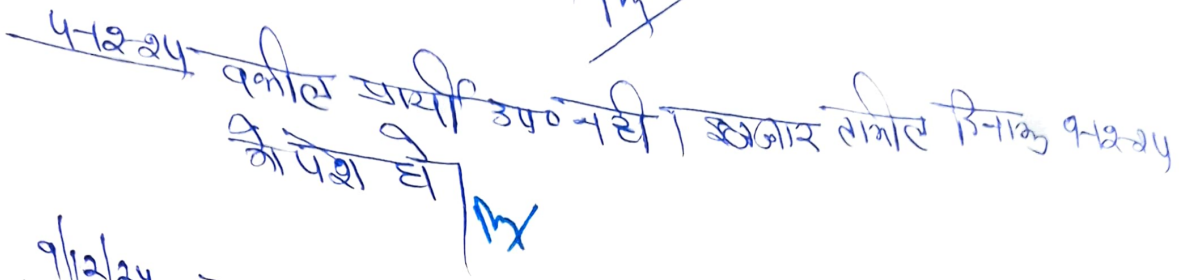 ५-१२-२५ वकील प्रार्थी उप० नही। इन्तजार तामील दिनांक ९-१२-२५
को पेश हो।
९/१२/२५